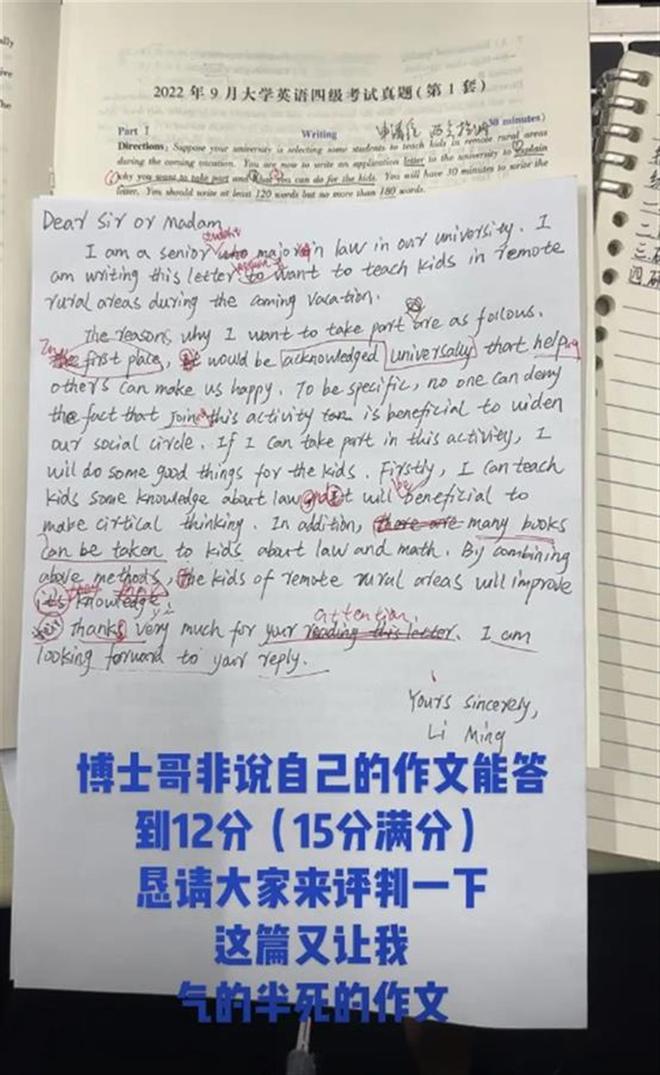 2022年9月大学英语四级考试真题(第1套)
Part I Writing 30 minutes)
Directions: Suppose your university is selecting some students to teach kids in remote rural areas
during the coming vacation. You are now to write an application letter to the university to explain
why you want to take part and what you can do for the kids. You will have 30 minutes to write the
letter. You should write at least 120 words but no more than 180 words.
Dear Sir or Madam
student
I am a senior who major in law in our university. I
am writing this letter to want to teach kids in remote
rural areas during the coming vacation.
The reasons why I want to take part are as follows.
In the first place, it would be acknowledged universally that helping
others can make us happy. To be specific, no one can deny
the fact that join this activity is beneficial to widen
our social circle. If I can take part in this activity, I
will do some good things for the kids. Firstly, I can teach
kids some knowledge about law and it will be beneficial to
make cirtical thinking. In addition, there are many books
can be taken to kids about law and math. By combining
above methods, The kids of remote rural areas will improve
it's knowledge.
their
attention
Thanks very much for your reading this letter. I am
looking forward to your reply.
Yours sincerely,
Li Ming
博士哥非说自己的作文能答
到12分(15分满分)
恳请大家来评判一下
这篇又让我
气的半死的作文